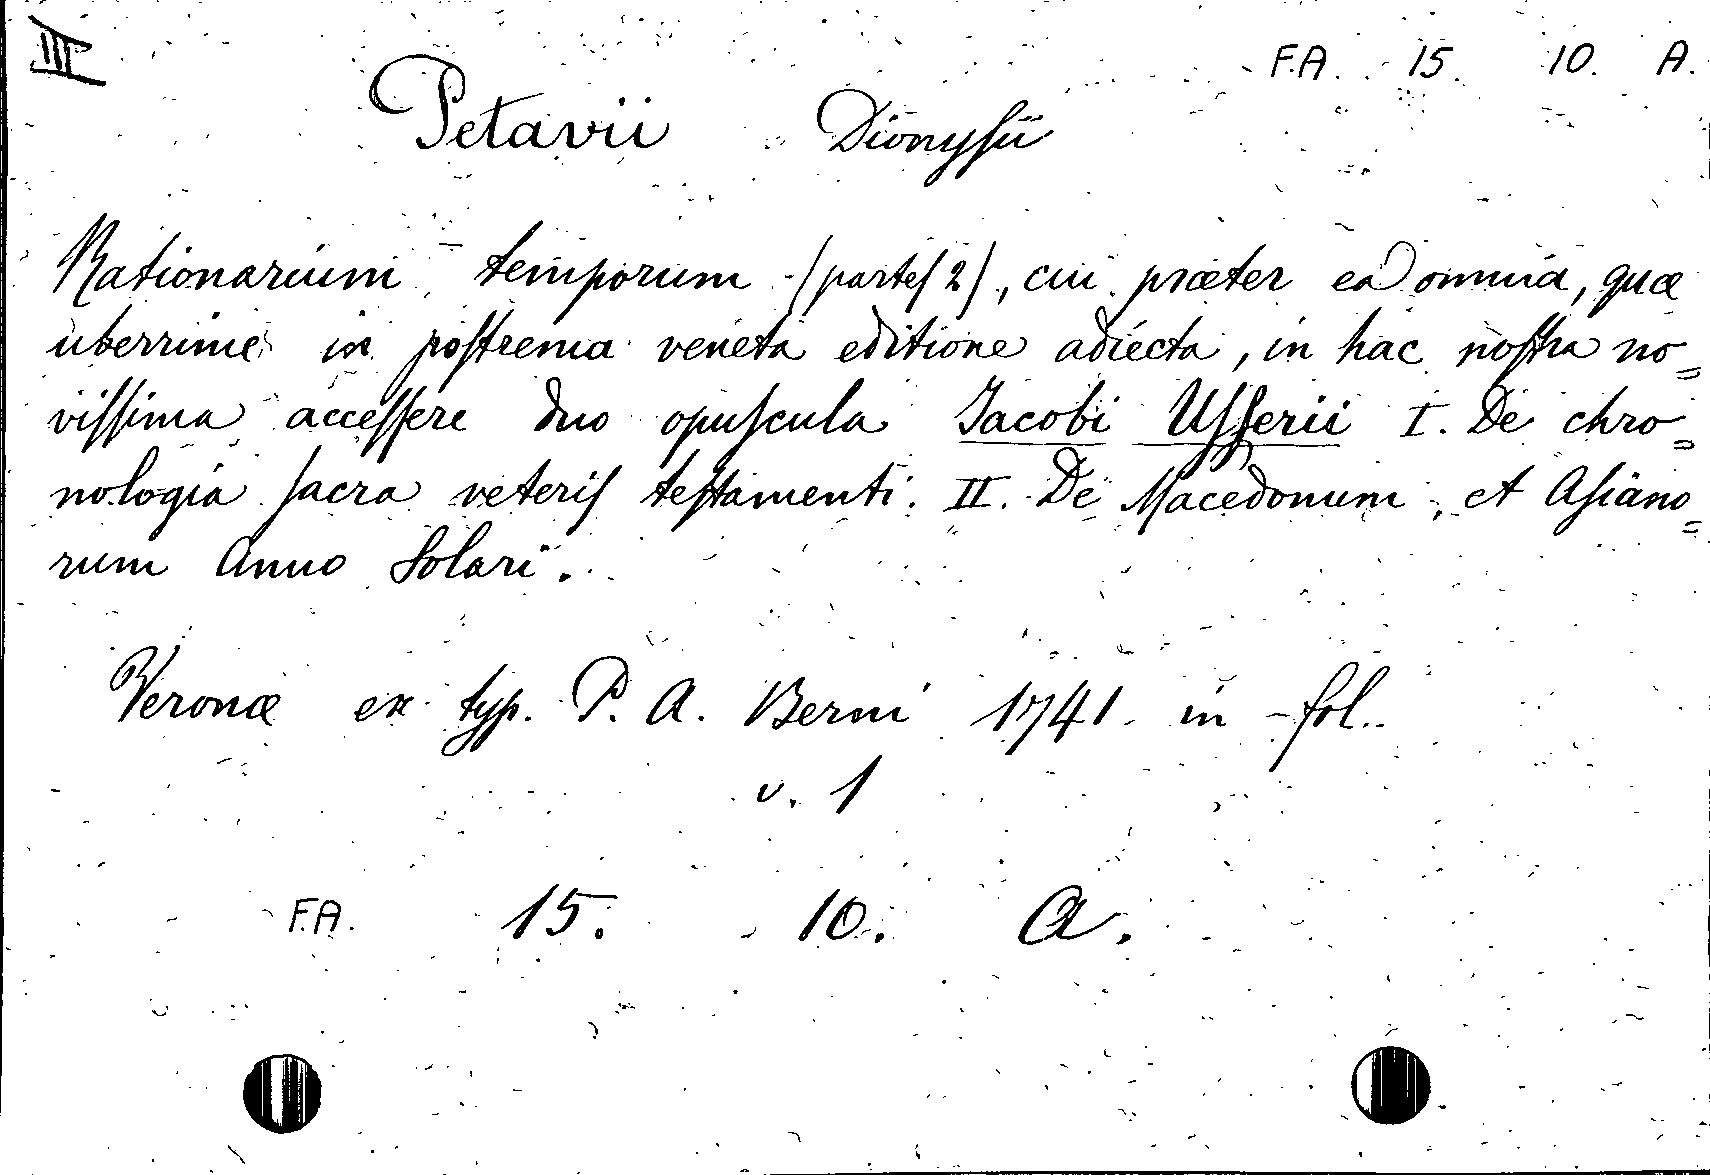 III
F.A. 15. 10. A.
Petavii Dionysii
Rationarium temporum (partes 2), cui præter ea omnia, quæ
uberrime in postrema veneta editione adiecta, in hac nostra no=
vissima accessere duo opuscula Jacobi Usserii I. De chro=
nologia sacra veteris testamenti. II. De Macedonum, et Asiano=
rum Anno Solari.
Veronæ ex typ. P. A. Berni 1741. in-fol.
v. 1
F.A. 15. 10. A.